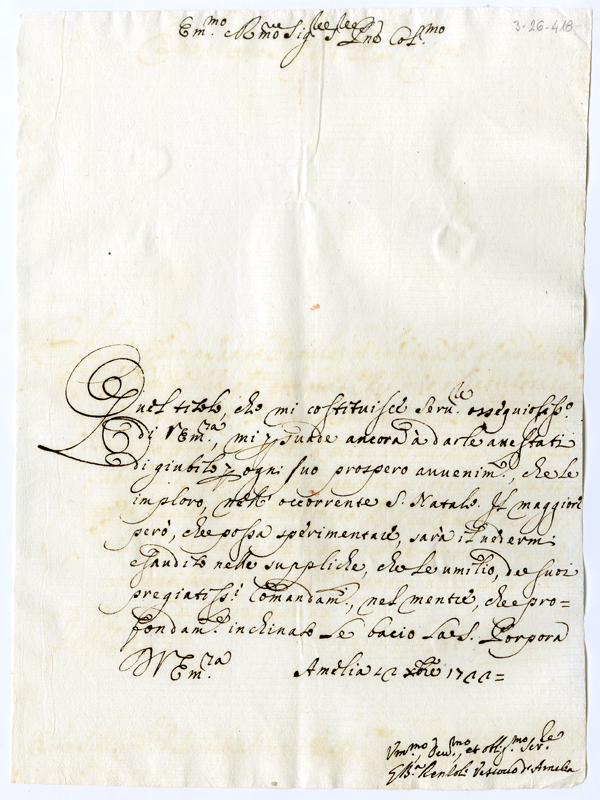 3-26-418
Em.mo Rmo Sig.re Pne Col.mo
Quel titolo, che mi costituisce Seru.le ossequiosiss.o
di VEm.za, mi psuade ancora à darle attestati
di giubilo p ogni suo prospero auuenim.o, che le
imploro, nell' occorrente S. Natale. Il maggiore
però, che possa sperimentare, sarà il uedermi
esaudito nelle suppliche, che le umilio, de suoi
pregiatiss.i Comandam.i, nel mentre, che pro=
fondam.e inchinato le bacio la S. Porpora
D VEm.za Amelia xbre
Um.mo, Deu.mo, et obl.mo Ser.le
G Ba Vescouo d'Amelia